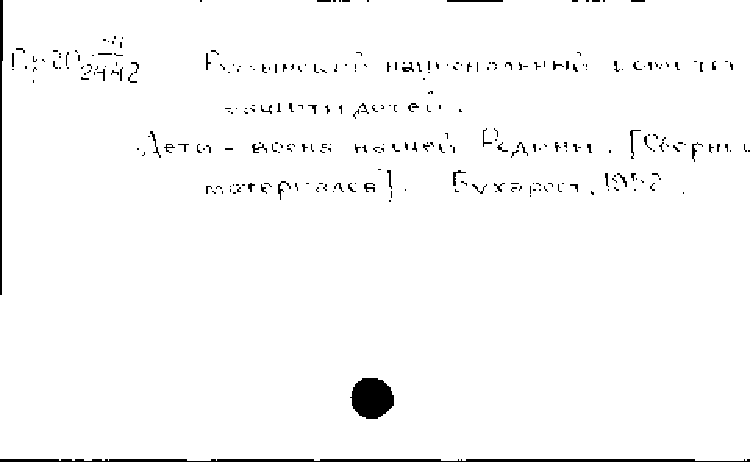 Румынский национальный комитет
защиты детей.
Дети - весна нашей Родины. [Сборник
материалов]. Бухарест, 1952.